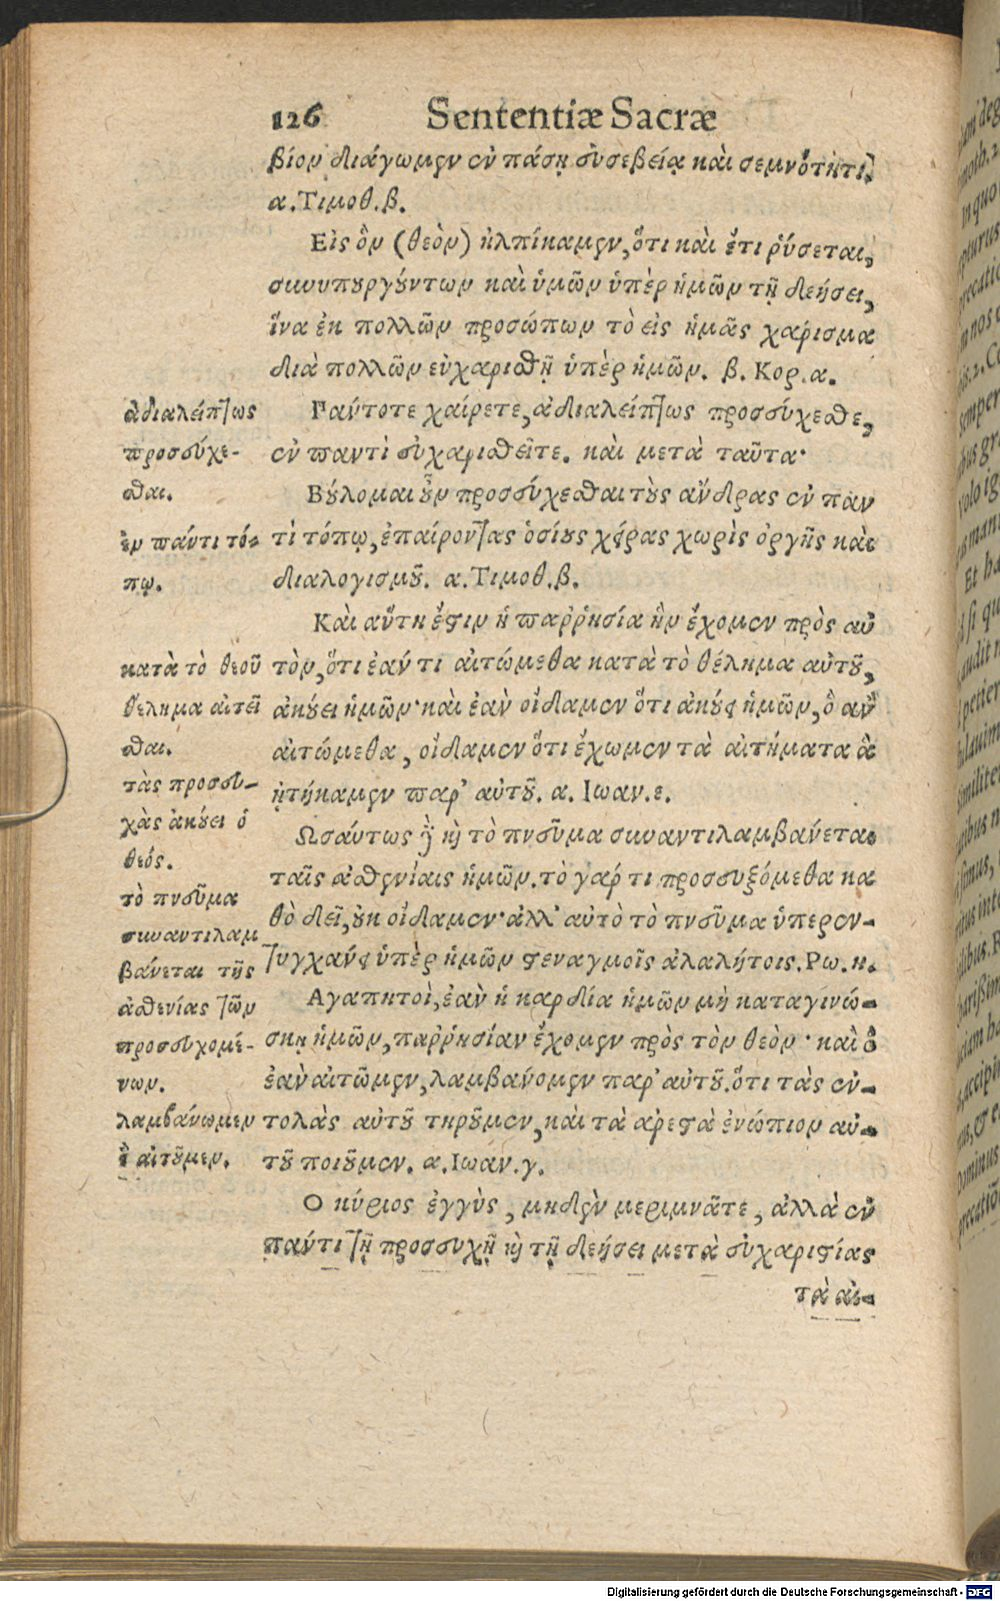 126 Sententiæ Sacræ
βίον διάγωμεν ἐν πάσῃ εὐσεβείᾳ καὶ σεμνότητι.
α. Τιμοθ. β.
Εἰς ὃν (θεὸν) ἠλπίκαμεν, ὅτι καὶ ἔτι ῥύσεται,
συνυπουργούντων καὶ ὑμῶν ὑπὲρ ἡμῶν τῇ δεήσει,
ἵνα ἐκ πολλῶν προσώπων τὸ εἰς ἡμᾶς χάρισμα
διὰ πολλῶν εὐχαρισθῇ ὑπὲρ ἡμῶν. β. Κορ. α.
Πάντοτε χαίρετε, ἀδιαλείπτως προσεύχεσθε,
ἐν παντὶ εὐχαρισθεῖτε. καὶ μετὰ ταῦτα·
Βούλομαι οὖν προσεύχεσθαι τοὺς ἄνδρας ἐν παν
τὶ τόπῳ, ἐπαίροντας ὁσίους χεῖρας χωρὶς ὀργῆς καὶ
διαλογισμοῦ. α. Τιμοθ. β.
Καὶ αὕτη ἔστιν ἡ παῤῥησία ἣν ἔχομεν πρὸς αὐ
τὸν, ὅτι ἐάν τι αἰτώμεθα κατὰ τὸ θέλημα αὐτοῦ,
ἀκούει ἡμῶν· καὶ ἐὰν οἴδαμεν ὅτι ἀκούει ἡμῶν, ὃ ἂν
αἰτώμεθα, οἴδαμεν ὅτι ἔχωμεν τὰ αἰτήματα ἃ
ᾐτήκαμεν παρ' αὐτοῦ. α. Ιωαν. ε.
Ωσαύτως δὲ καὶ τὸ πνεῦμα συναντιλαμβάνεται
ταῖς ἀσθενίαις ἡμῶν. τὸ γάρ τι προσευξόμεθα κα
θὸ δεῖ, οὐκ οἴδαμεν· ἀλλ' αὐτὸ τὸ πνεῦμα ὑπερεν-
τυγχάνει ὑπὲρ ἡμῶν στεναγμοῖς ἀλαλήτοις. Ρω. η.
Αγαπητοὶ, ἐὰν ἡ καρδία ἡμῶν μὴ καταγινώ-
σκῃ ἡμῶν, παῤῥησίαν ἔχομεν πρὸς τὸν θεὸν· καὶ ὃ
ἐὰν αἰτῶμεν, λαμβάνομεν παρ' αὐτοῦ. ὅτι τὰς ἐν-
τολὰς αὐτοῦ τηροῦμεν, καὶ τὰ ἀρεστὰ ἐνώπιον αὐ-
τοῦ ποιοῦμεν. α. Ιωαν. γ.
Ο κύριος ἐγγὺς, μηδὲν μεριμνᾶτε, ἀλλὰ ἐν
παντὶ τῇ προσευχῇ καὶ τῇ δεήσει μετὰ εὐχαριστίας
τὰ αἰ-
ἀδιαλείπτως
προσεύχε-
σθαι.
ἐν πάντι τό-
πῳ.
κατὰ τὸ θεοῦ
θέλημα αἰτεῖ
σθαι.
τὰς προσευ-
χὰς ἀκούει ὁ
θεός.
τὸ πνεῦμα
συναντιλαμ
βάνεται τῆς
ἀσθενίας τῶν
προσευχομέ-
νων.
λαμβάνωμεν
ὃ αἰτοῦμεν.
Digitalisierung gefördert durch die Deutsche Forschungsgemeinschaft - DFG